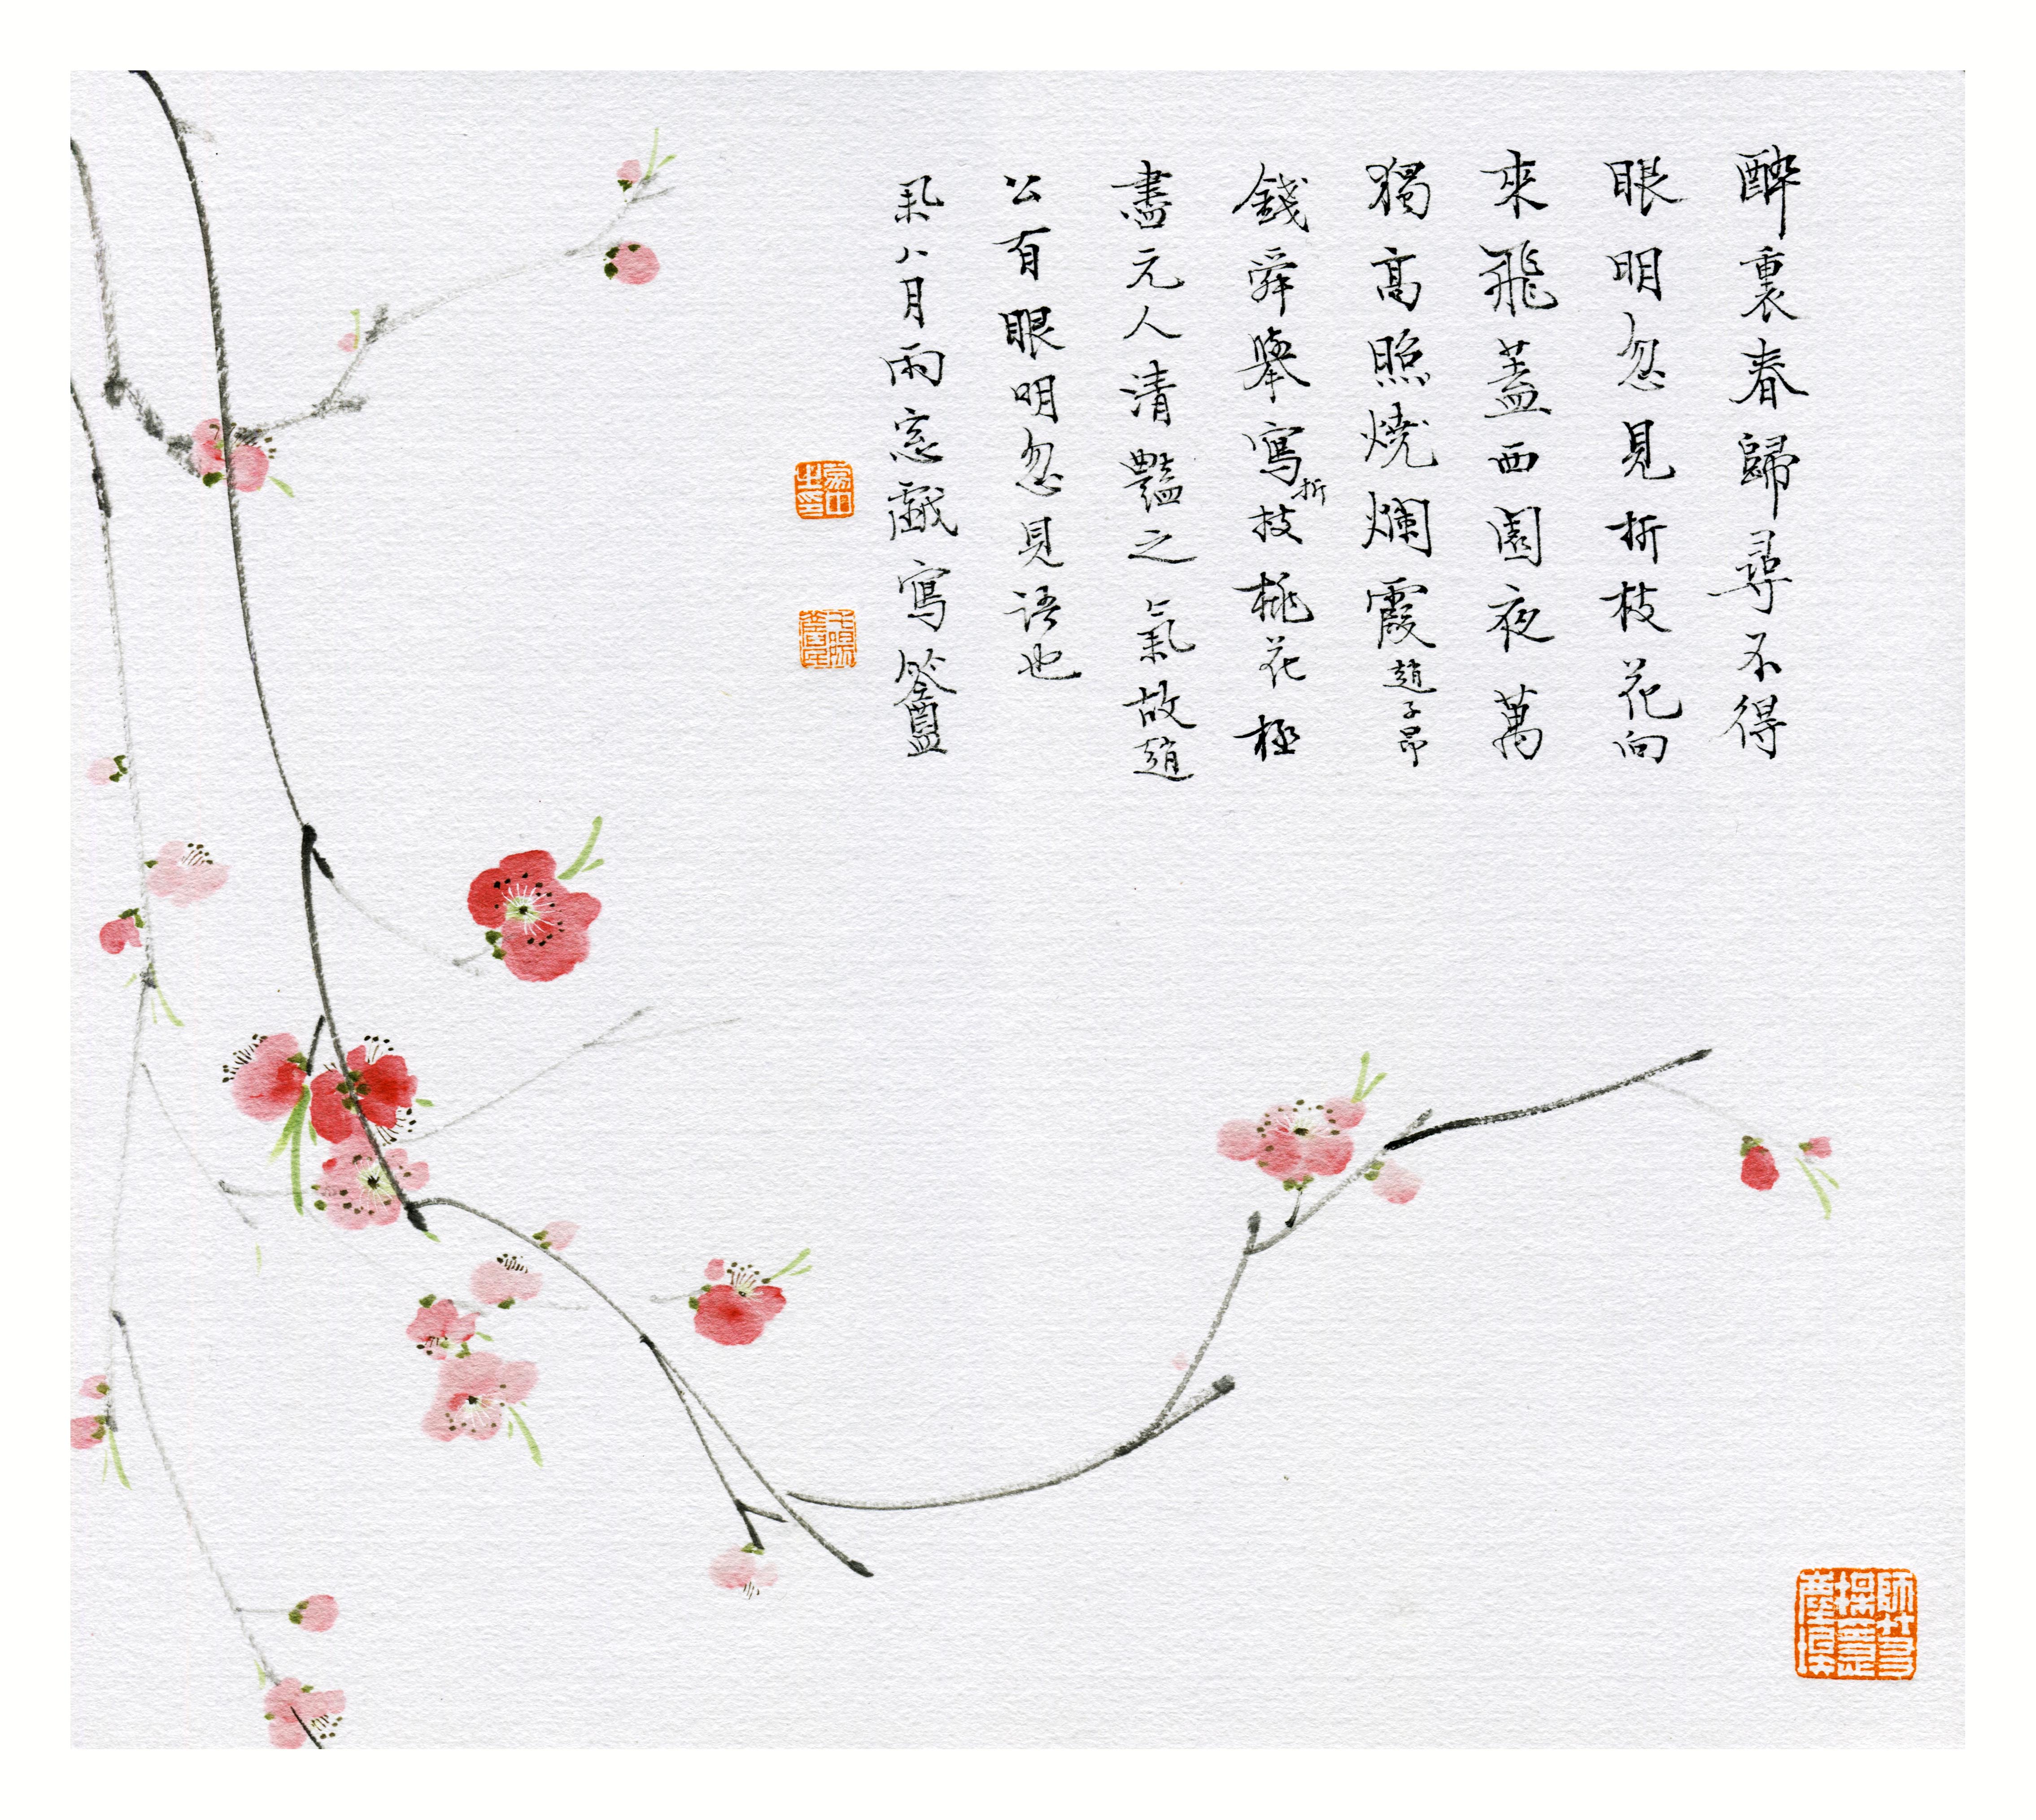 醉裏春歸尋不得
眼明忽見折枝花向
來飛蓋西園夜萬
獨高照燒爛霞趙子昂
錢舜舉寫折枝桃花極
盡元人清豔之氣故趙
公有眼明忽見語也
八月雨窓戲寫